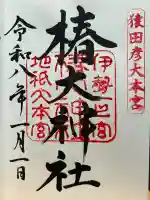 猿田彦大本宮
伊勢一之宮
椿大神社
地祇大本宮
令和八年一月一日